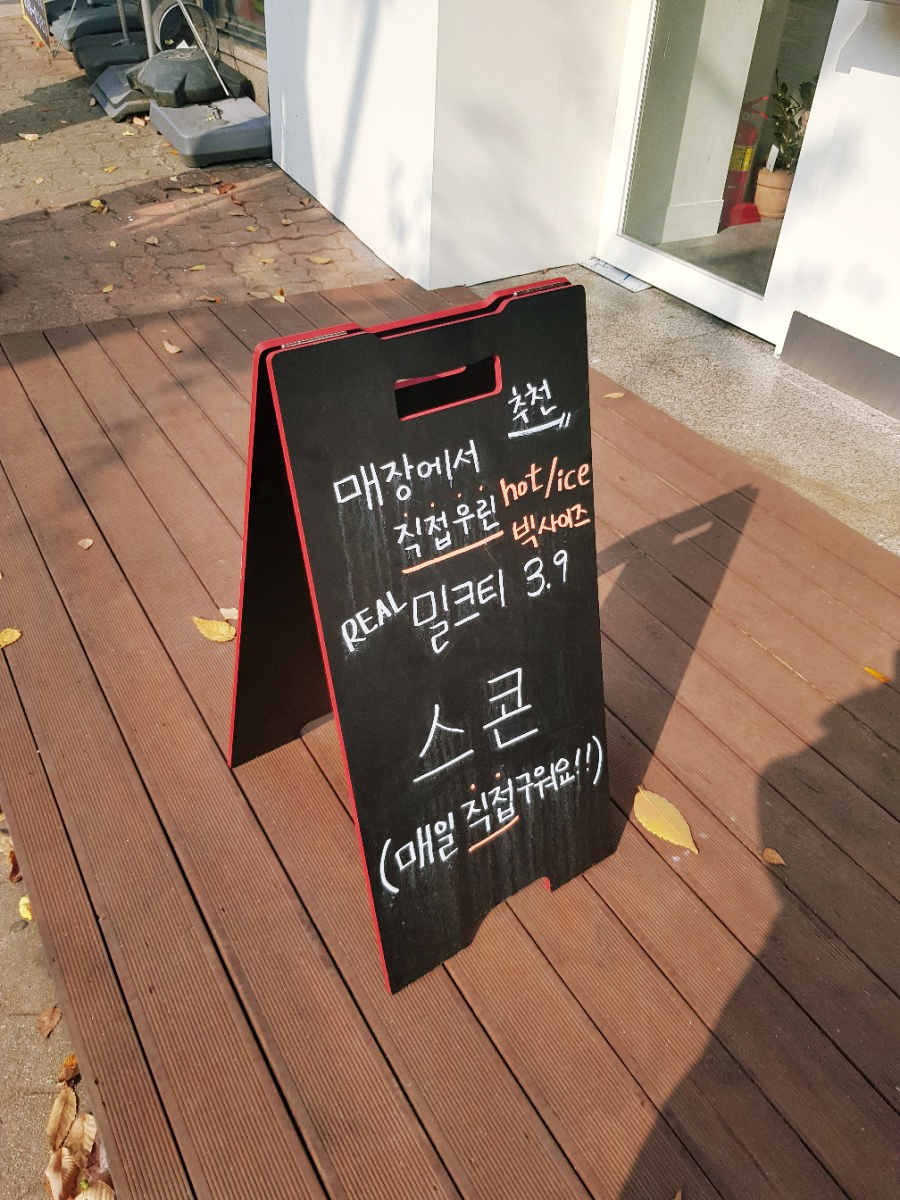 추천
매장에서
직접우린 hot/ice
빅사이즈
REAL 밀크티 3.9
스콘
(매일 직접구워요!!)